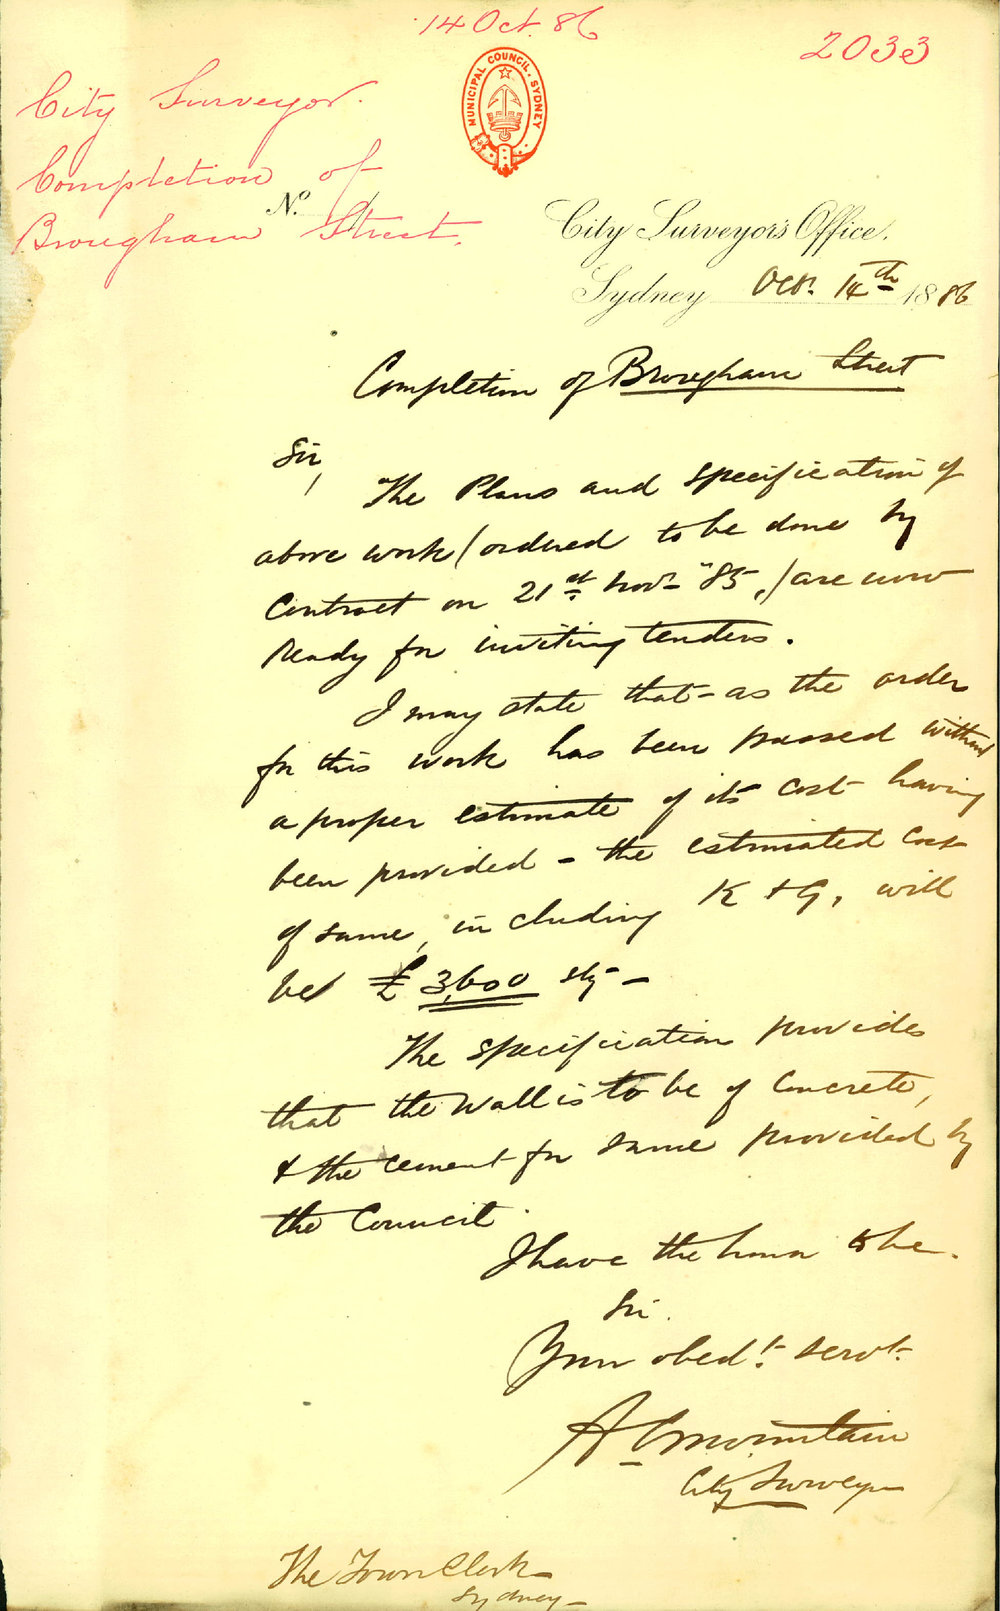 14 Oct. 86
2033
MUNICIPAL COUNCIL. SYDNEY
City Surveyor.
Completion of
Brougham Street.
No.
City Surveyor's Office.
Sydney Oct. 14th 1886
Completion of Brougham Street
Sir,
The Plans and specification of
above work (ordered to be done by
Contract on 21st Novr. "85,) are now
ready for inviting tenders.
I may state that - as the order
for this work has been passed without
a proper estimate of its cost having
been provided - the estimated cost
of same, including K & G, will
be £3,600 stg -
The specification provides
that the Wall is to be of Concrete,
& the cement for same provided by
the Council.
I have the honor to be.
Sir.
Your obedt. servt.
A C Mountain
City Surveyor
The Town Clerk
Sydney -